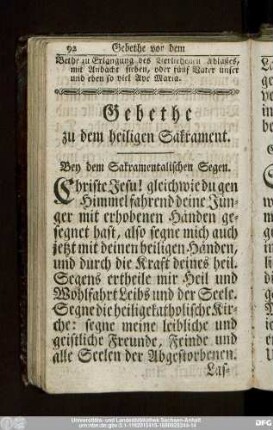 92 Gebethe vor dem
Bethe zu Erlangung des verliehenen Ablaßes,
mit Andacht sieben, oder fünf Vater unser
und eben so viel Ave Maria.
Gebethe
zu dem heiligen Sakrament.
Bey dem Sakramentalischen Segen.
Christe Jesu! gleichwie du gen
Himmel fahrend deine Jün-
ger mit erhobenen Händen ge-
segnet hast, also segne mich auch
jetzt mit deinen heiligen Händen,
und durch die Kraft deines heil.
Segens ertheile mir Heil und
Wohlfahrt Leibs und der Seele.
Segne die heilige katholische Kir-
che: segne meine leibliche und
geistliche Freunde, Feinde und
alle Seelen der Abgestorbenen.
Las-